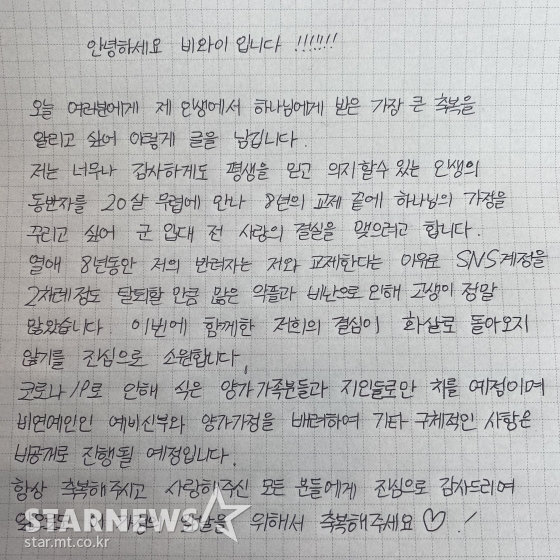 안녕하세요 비와이 입니다 !!!!!!!
오늘 여러분에게 제 인생에서 하나님에게 받은 가장 큰 축복을
알리고 싶어 이렇게 글을 남깁니다.
저는 너무나 감사하게도 평생을 믿고 의지할수 있는 인생의
동반자를 20살 무렵에 만나 8년의 교제 끝에 하나님의 가정을
꾸리고 싶어 군 입대 전 사랑의 결실을 맺으려고 합니다.
열애 8년동안 저의 반려자는 저와 교제한다는 이유로 SNS계정을
2차례정도 탈퇴할 만큼 많은 악플과 비난으로 인해 고생이 정말
많았습니다. 이번에 함께한 저희의 결심이 화살로 돌아오지
않기를 진심으로 소원합니다.
코로나19로 인해 식은 양가가족분들과 지인들로만 치를 예정이며
비연예인인 예비신부와 양가가정을 배려하여 기타 구체적인 사항은
비공개로 진행될 예정입니다.
항상 축복해주시고 사랑해주신 모든 분들에게 진심으로 감사드리며
위해서 축복해주세요 ♡ !
STARNEWS
star.mt.co.kr